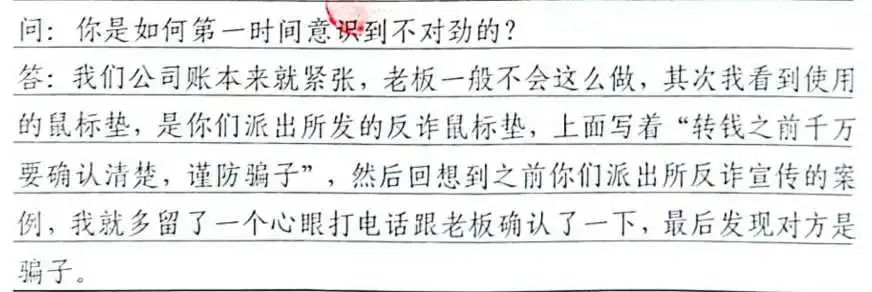 问：你是如何第一时间意识到不对劲的？
答：我们公司账本来就紧张，老板一般不会这么做，其次我看到使用
的鼠标垫，是你们派出所发的反诈鼠标垫，上面写着“转钱之前千万
要确认清楚，谨防骗子”，然后回想到之前你们派出所反诈宣传的案
例，我就多留了一个心眼打电话跟老板确认了一下，最后发现对方是
骗子。